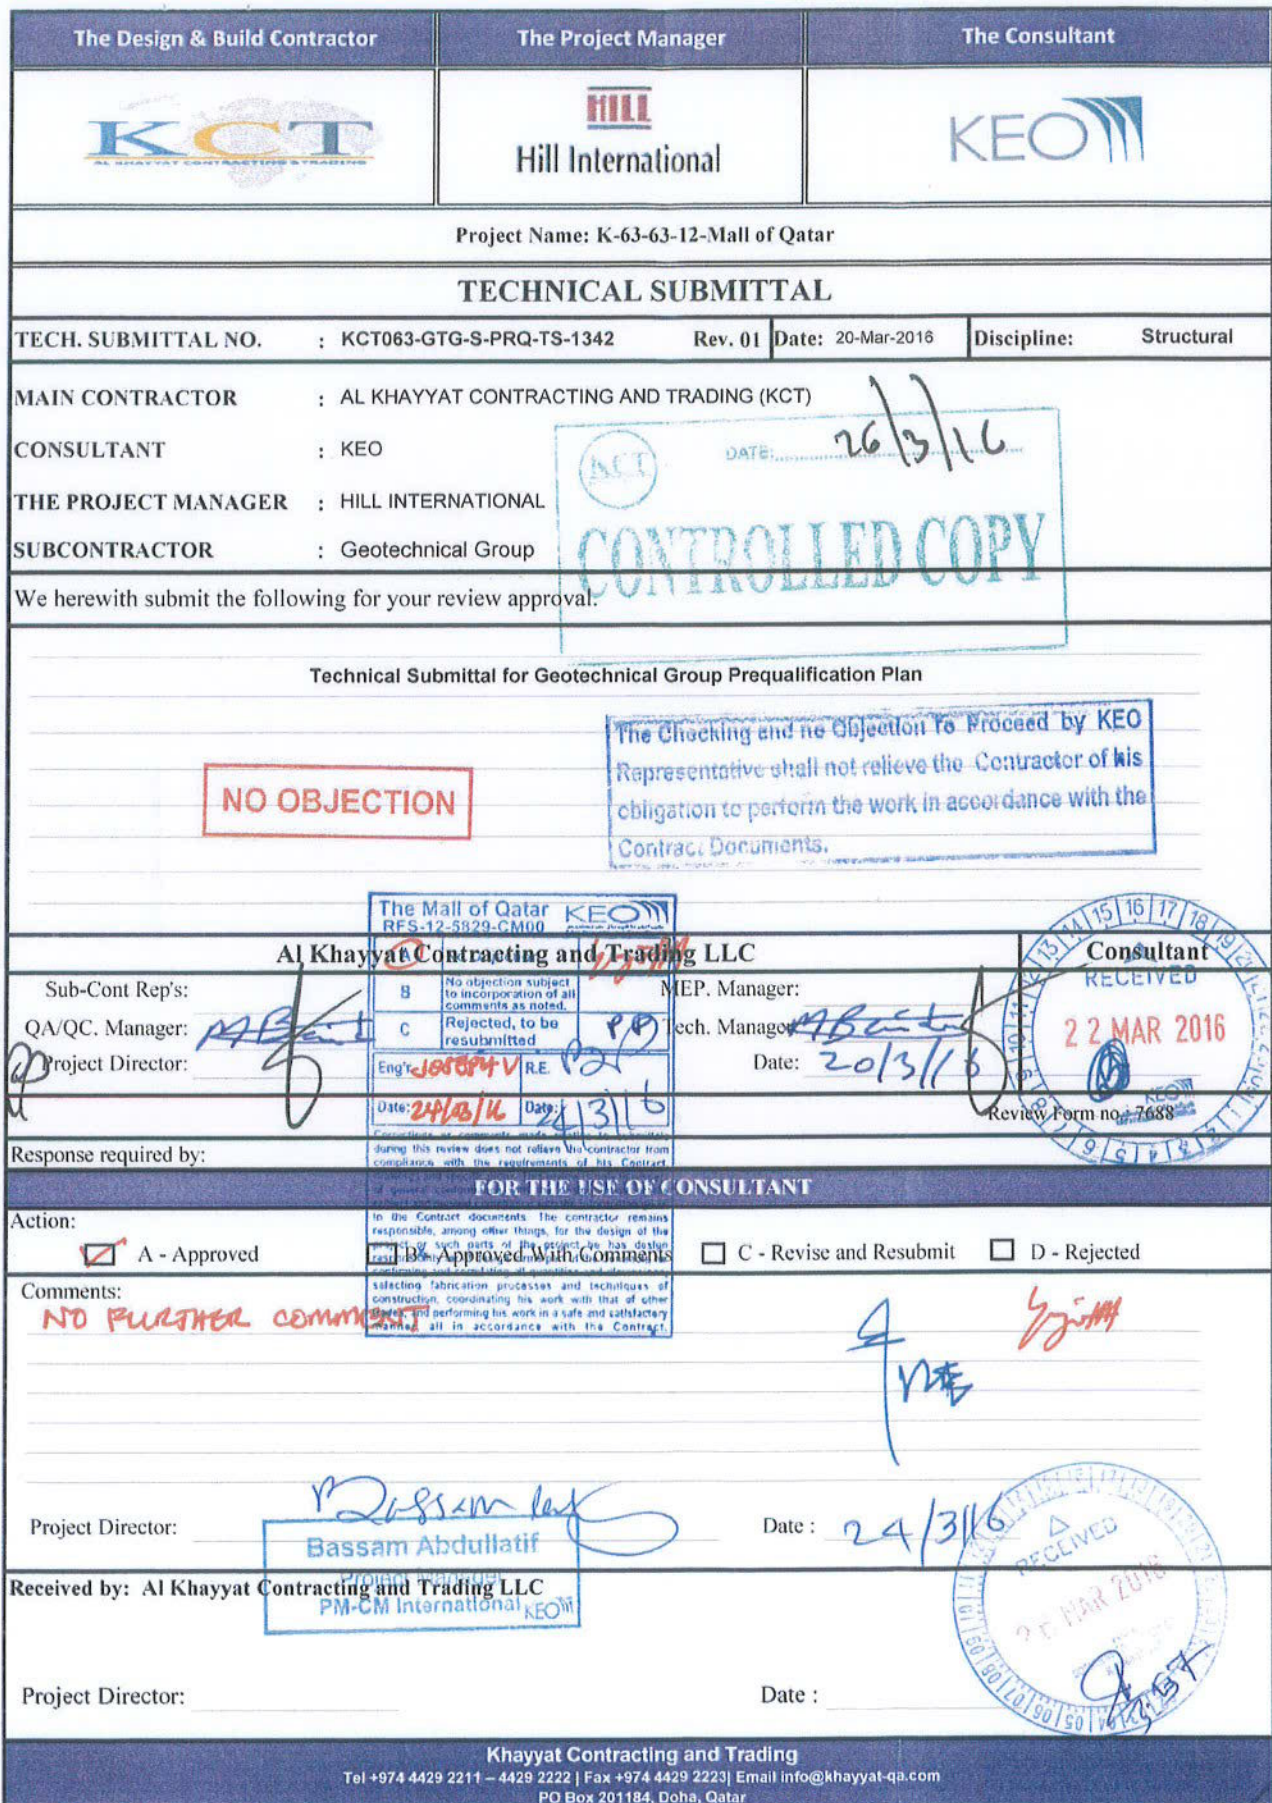 The Design & Build Contractor
The Project Manager
The Consultant
KCT
AL KHAYYAT CONTRACTING & TRADING
HILL
Hill International
KEO
Project Name: K-63-63-12-Mall of Qatar
TECHNICAL SUBMITTAL
TECH. SUBMITTAL NO. : KCT063-GTG-S-PRQ-TS-1342 Rev. 01 Date: 20-Mar-2016 Discipline: Structural
MAIN CONTRACTOR : AL KHAYYAT CONTRACTING AND TRADING (KCT)
CONSULTANT : KEO
THE PROJECT MANAGER : HILL INTERNATIONAL
SUBCONTRACTOR : Geotechnical Group
KCT
DATE: 26/3/16
CONTROLLED COPY
We herewith submit the following for your review approval.
Technical Submittal for Geotechnical Group Prequalification Plan
NO OBJECTION
The Checking and no Objection To Proceed by KEO
Representative shall not relieve the Contractor of his
obligation to perform the work in accordance with the
Contract Documents.
The Mall of Qatar KEO
RFS-12-5829-CM00
Al Khayyat Contracting and Trading LLC
Consultant
A
B No objection subject
to incorporation of all
comments as noted.
C Rejected, to be
resubmitted
Eng'r R.E.
Date: 24/03/16 Date: 24/3/16
Sub-Cont Rep's:
MEP. Manager:
QA/QC. Manager:
Tech. Manager
Project Director:
Date: 20/3/16
RECEIVED
22 MAR 2016
KEO
Review Form no.: 7688
Response required by:
during this review does not relieve the contractor from
compliance with the requirements of his Contract
FOR THE USE OF CONSULTANT
to the Contract documents. The contractor remains
responsible, among other things, for the design of the
Action:
A - Approved
B - Approved With Comments
C - Revise and Resubmit
D - Rejected
selecting fabrication processes and techniques of
construction, coordinating his work with that of other
and performing his work in a safe and satisfactory
manner, all in accordance with the Contract.
Comments:
NO FURTHER COMMENT
Project Director:
Date : 24/3/16
Bassam Abdullatif
Project Manager
PM-CM International KEO
RECEIVED
MAR 2016
Received by: Al Khayyat Contracting and Trading LLC
Project Director:
Date :
Khayyat Contracting and Trading
Tel +974 4429 2211 – 4429 2222 | Fax +974 4429 2223| Email info@khayyat-qa.com
PO Box 201184, Doha, Qatar